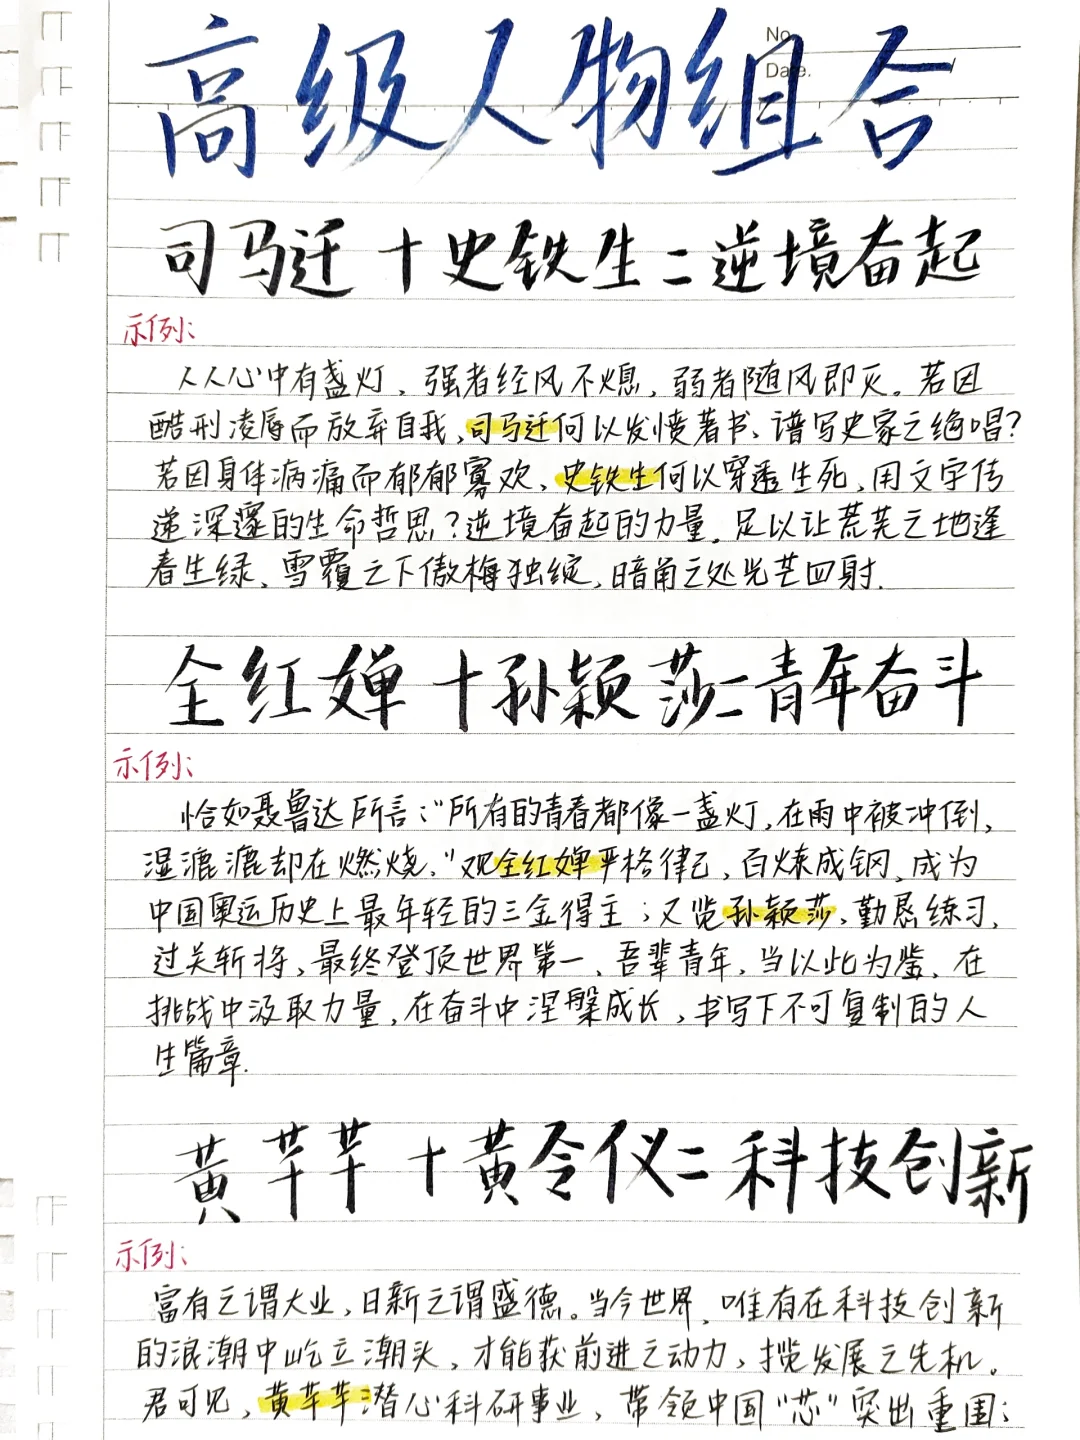 No.
Date.
高级人物组合
司马迁+史铁生=逆境奋起
示例:
人人心中有盏灯，强者经风不熄，弱者随风即灭。若因
酷刑凌辱而放弃自我，司马迁何以发愤著书、谱写史家之绝唱？
若因身体病痛而郁郁寡欢，史铁生何以穿透生死，用文字传
递深邃的生命哲思？逆境奋起的力量，足以让荒芜之地逢
春生绿、雪覆之下傲梅独绽，暗角之处光芒四射.
全红婵+孙颖莎=青年奋斗
示例:
恰如聂鲁达所言:“所有的青春都像一盏灯，在雨中被冲倒，
湿漉漉却在燃烧，”观全红婵严格律己，百炼成钢，成为
中国奥运历史上最年轻的三金得主；又览孙颖莎，勤恳练习，
过关斩将，最终登顶世界第一、吾辈青年，当以此为鉴，在
挑战中汲取力量，在奋斗中涅槃成长，书写下不可复制的人
生篇章.
黄芊芊+黄令仪=科技创新
示例:
富有之谓大业，日新之谓盛德。当今世界，唯有在科技创新
的浪潮中屹立潮头，才能获前进之动力，揽发展之先机。
君可见，黄芊芊潜心科研事业，带领中国“芯”突出重围；